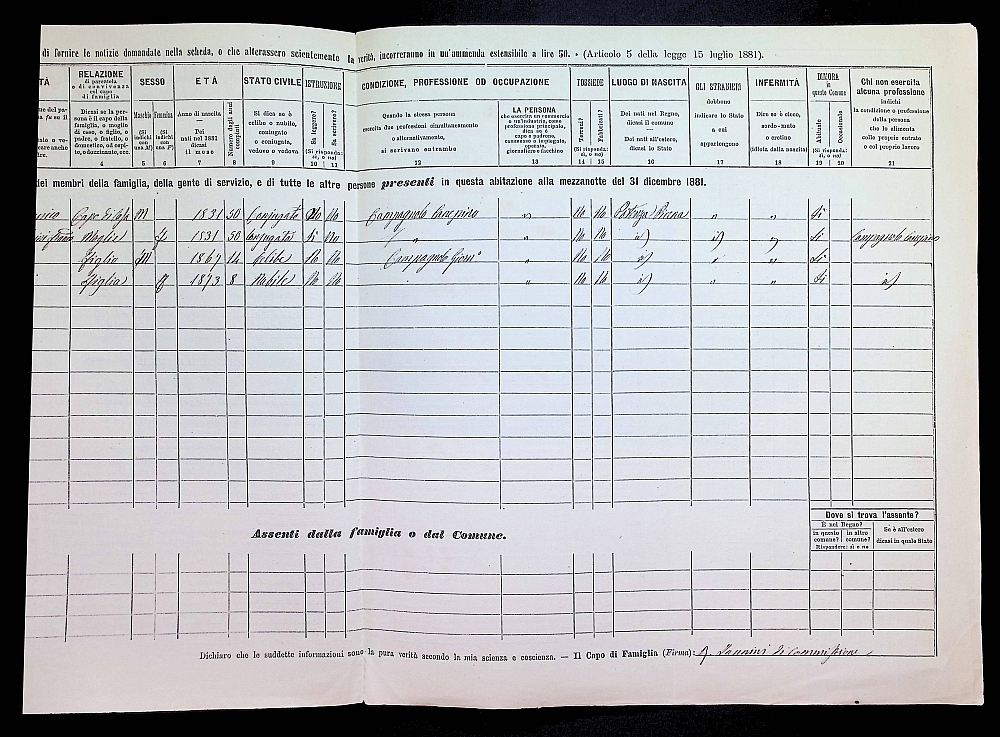 di fornire le notizie domandate nella scheda, o che alterassero scientemente la verità, incorreranno in un'ammenda estensibile a lire 50. » (Articolo 5 della legge 15 luglio 1881).
TÀ
RELAZIONE
di parentela
o di convivenza
col capo
di famiglia
SESSO
ETÀ
STATO CIVILE
ISTRUZIONE
CONDIZIONE, PROFESSIONE OD OCCUPAZIONE
POSSIEDE
LUOGO DI NASCITA
GLI STRANIERI
INFERMITÀ
DIMORA
in
questo Comune
Chi non esercita
alcuna professione
Dicasi se la persona è il capo della famiglia, o moglie di caso, o figlio, o padre, o fratello, o domestico, od ospite, o dozzinante, ecc.
Maschio
(Si indichi con una M)
Femmina
(Si indichi con una F)
Anno di nascita
Pei nati nel 1881 dicasi il mese
Numero degli anni compiuti
Si dica se è celibe o nubile, coniugato o coniugata, vedovo o vedova
Sa leggere?
Sa scrivere?
(Si risponda: sì, o no)
Quando la stessa persona
esercita due professioni simultaneamente
o alternativamente,
si scrivano entrambe
LA PERSONA
che esercita un commercio
o un'industria, come
professione principale,
dica se è
capo o padrone,
commesso o impiegato,
operaio,
giornaliero o facchino
Terreni?
Fabbricati?
(Si risponda: sì, o no)
Pei nati nel Regno,
dicasi il comune
Pei nati all'estero,
dicasi lo Stato
dovranno
indicare lo Stato
a cui
appartengono
Dire se è cieco,
sordo-muto
o cretino
(idiota dalla nascita)
Abituale
Occasionale
(Si risponda: sì, o no)
indichi
la condizione o professione
della persona
che lo alimenta
colle proprie entrate
o col proprio lavoro
4 5 6 7 8 9 10 11 12 13 14 15 16 17 18 19 20 21
dei membri della famiglia, della gente di servizio, e di tutte le altre persone presenti in questa abitazione alla mezzanotte del 31 dicembre 1881.
M 1831 50 Coniugato No No Campagnolo No No Potenza Picena " " Si
Moglie f 1831 50 Coniugata Si No " " No No id) " Si Campagnolo
Figlio M 1867 14 Celibe No No Campagnolo " No No id) " " Si
Figlia f 1873 8 Nubile No No " No No id) " " Si id)
Assenti dalla famiglia o dal Comune.
Dove si trova l'assente?
È nel Regno?
in questo comune?
in altro comune?
Rispondere: sì o no
Se è all'estero
dicasi in quale Stato
Dichiaro che le suddette informazioni sono la pura verità secondo la mia scienza e coscienza. — Il Capo di Famiglia (Firma):